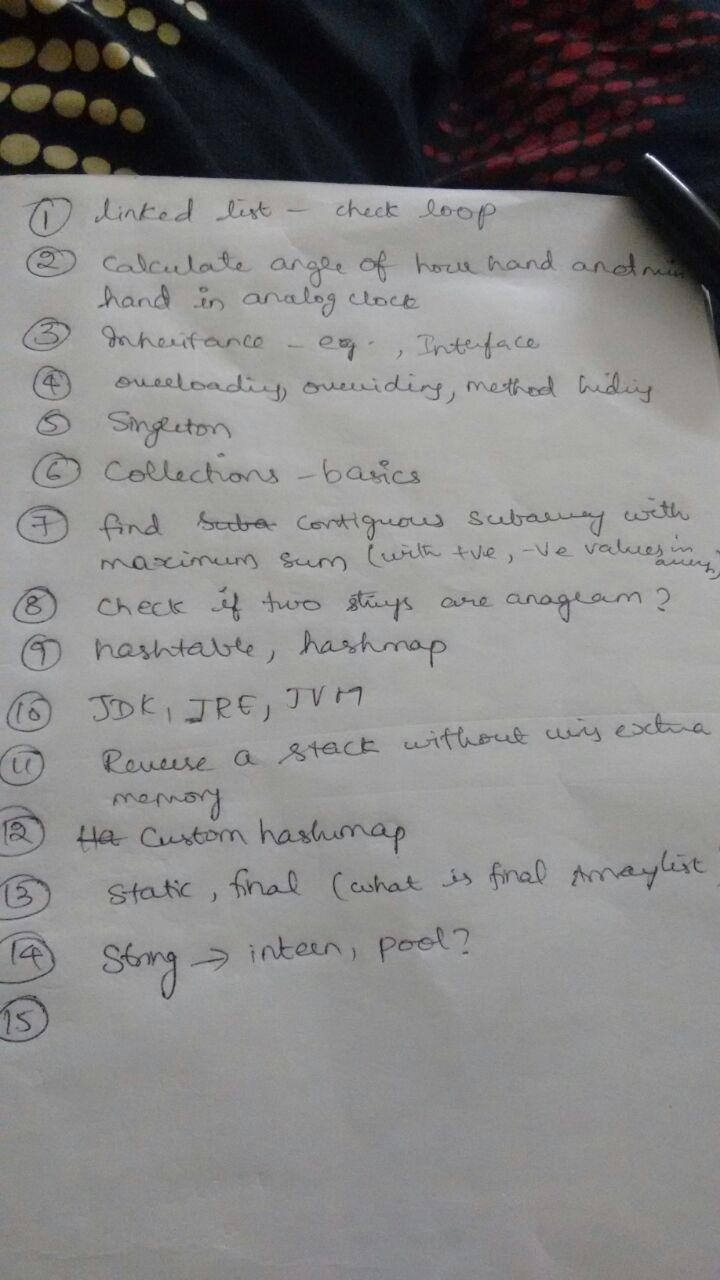 ① linked list - check loop
② Calculate angle of hour hand and min
hand in analog clock
③ Inheritance - eg., Interface
④ overloading, overriding, method hiding
⑤ Singleton
⑥ Collections - basics
⑦ find Suba contiguous subarray with
maximum sum (with +ve, -ve values in array)
⑧ Check if two strings are anagram?
⑨ hashtable, hashmap
⑩ JDK, JRE, JVM
⑪ Reverse a stack without using extra
memory
⑫ Ha Custom hashmap
⑬ Static, final (what is final Arraylist)
⑭ String → intern, pool?
⑮